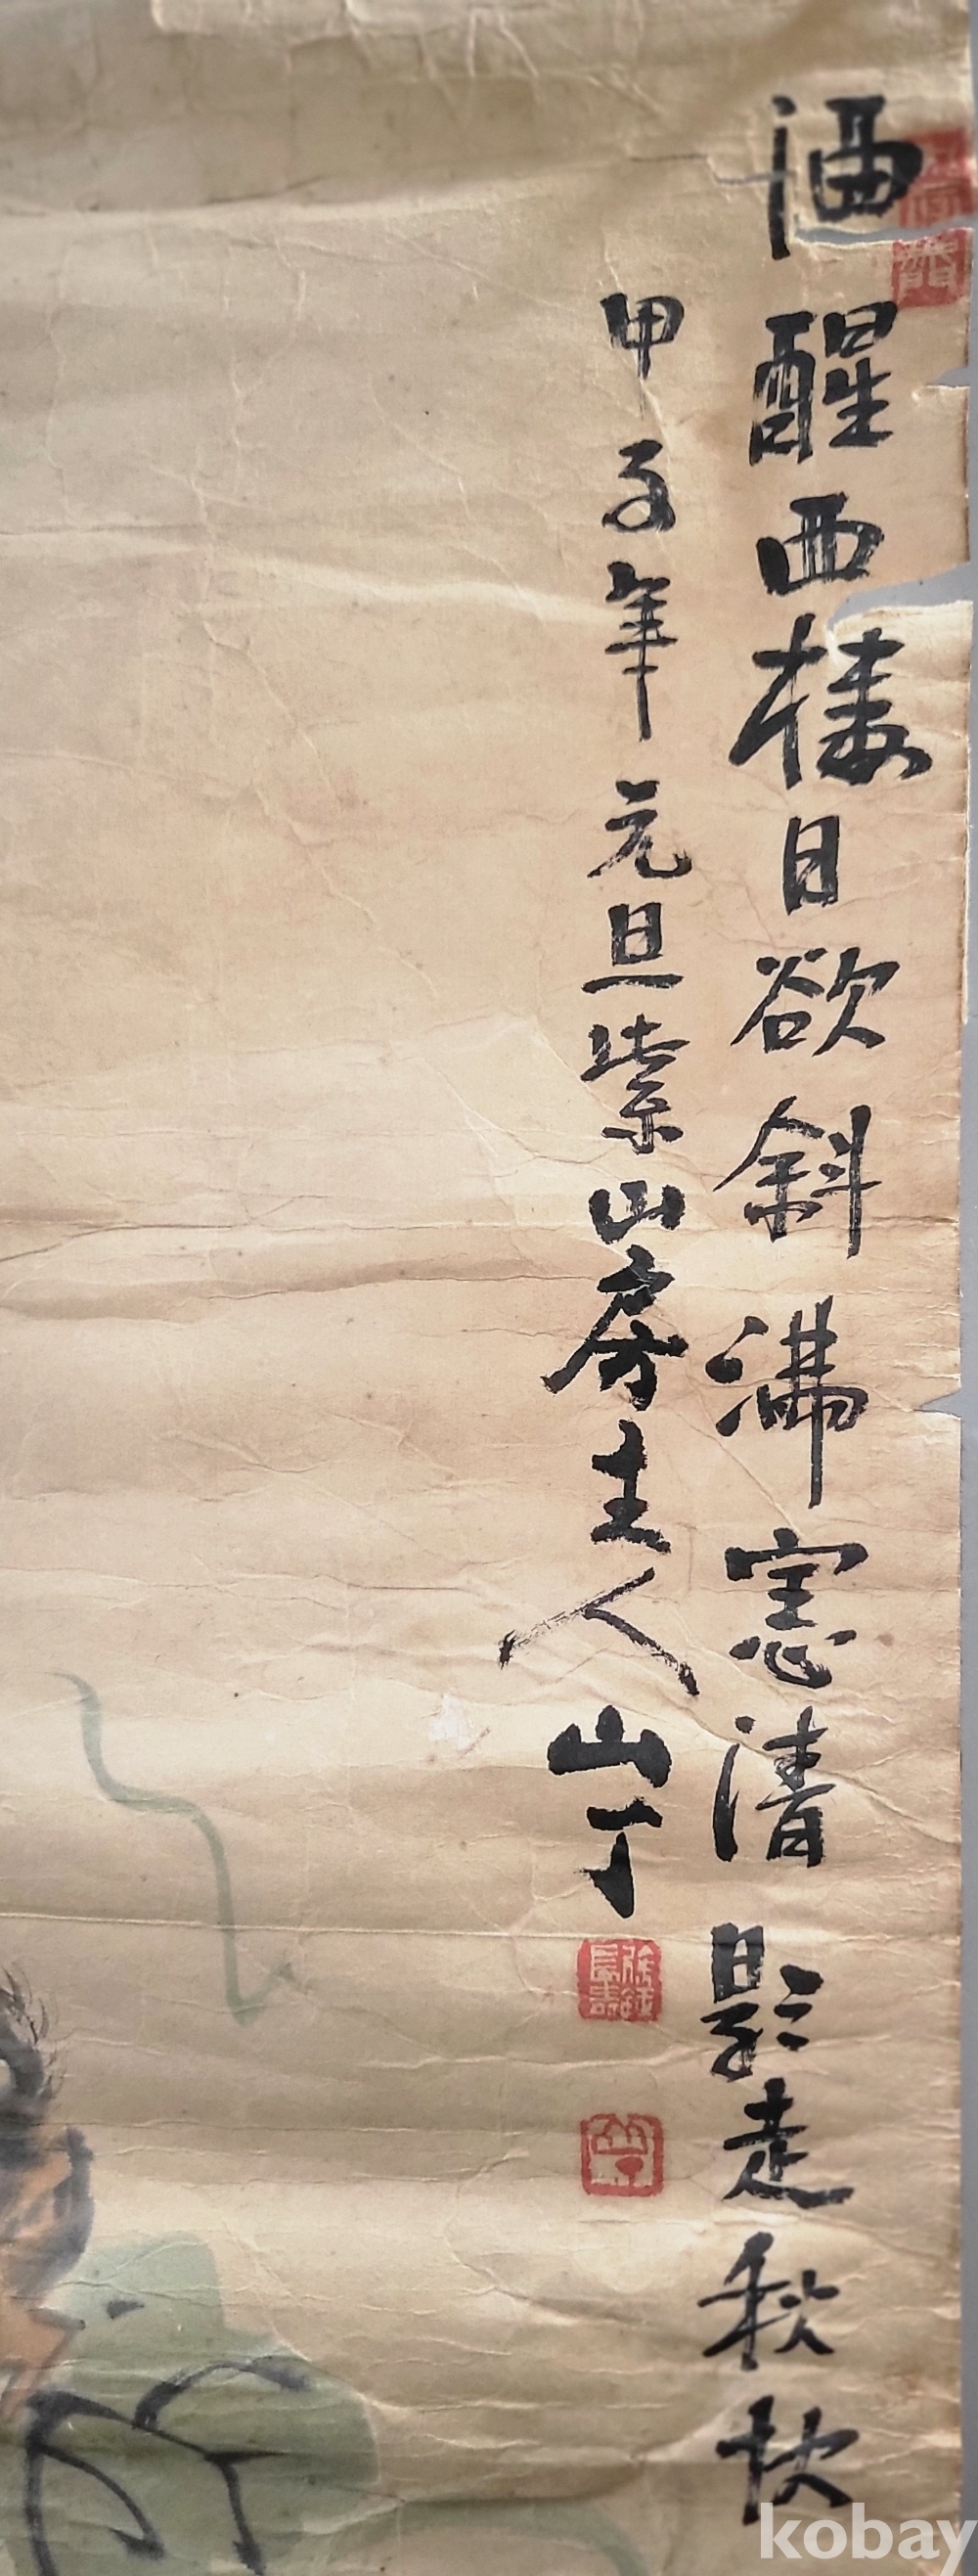 酒醒西楼日欲斜沸窓清影走秋
甲子年元旦紫山房主人山丁
kobay